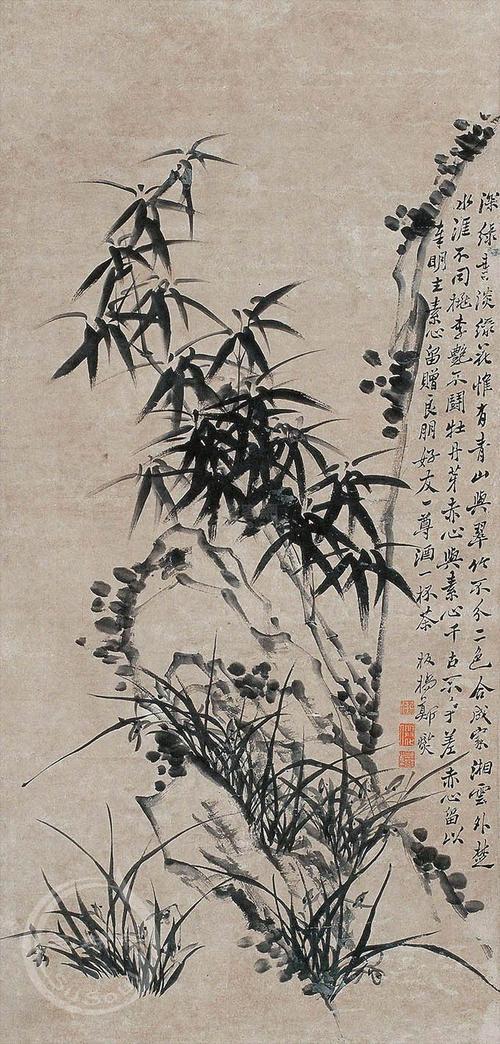 深綠葉淡綠花惟有青山與翠竹不分二色合成家湘雲外楚
水涯不同桃李艷不鬪牡丹芽赤心與素心千古不爭差赤心留以
奉明主素心留贈良朋好友一尊酒一杯茶 板橋鄭燮